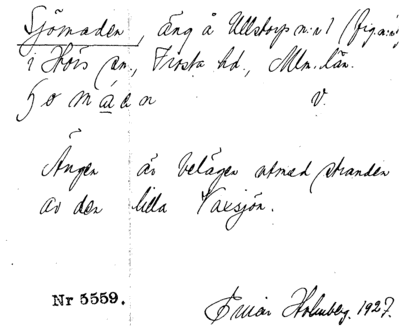 Sjömaden, äng å Ullstorps m:n 1 (fig.
i Hörs sn., Frosta hd., Mlm. län.
v.
Ängen är belägen utmed stranden
av den lilla Vaxsjön.
Nr 5559.
Einar Holmberg. 1927.